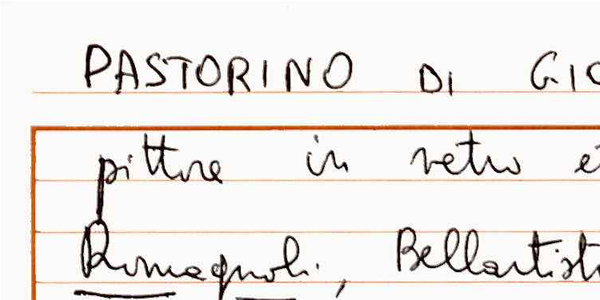 PASTORINO DI GIO
pittore in vetro e
Romagnoli, Bellartist